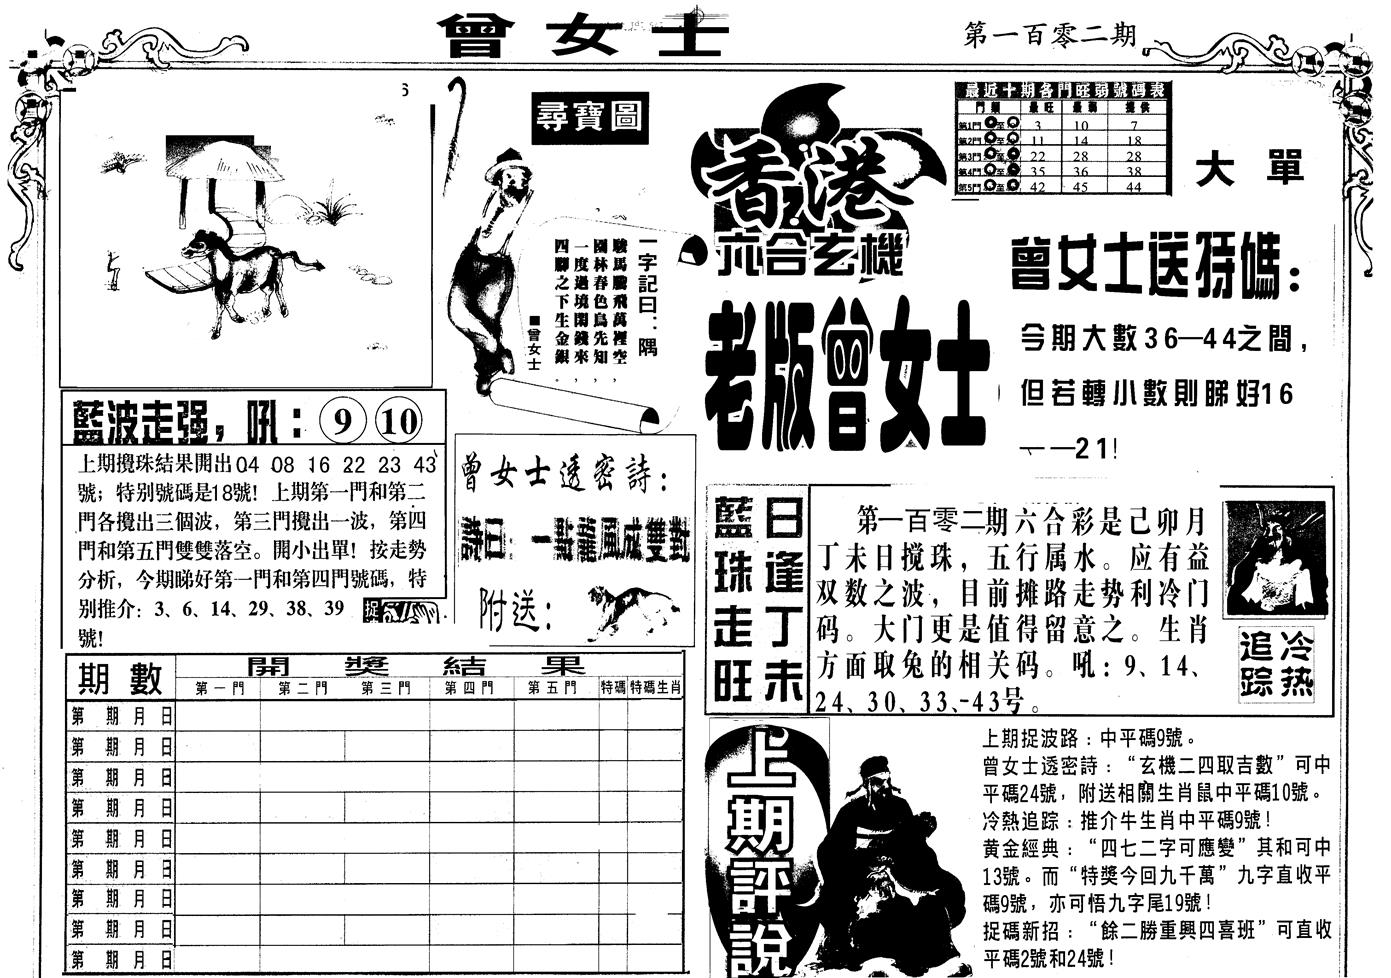 曾女士
第一百零二期
尋寶圖
一字記曰：隅
駿馬騰飛萬裡空，
園林春色鳥先知，
一度過境閑錢來，
四腳之下生金銀。
■曾女士
香港
六合玄機
老版曾女士
最近十期各門旺弱號碼表
門類 最旺 最弱 提供
第1門 至 3 10 7
第2門 至 11 14 18
第3門 至 22 28 28
第4門 至 35 36 38
第5門 至 42 45 44
大單
曾女士送特碼：
今期大數36—44之間，
但若轉小數則睇好16
——21！
藍波走强，吼：9 10
上期攪珠結果開出04 08 16 22 23 43
號；特别號碼是18號！上期第一門和第二
門各攪出三個波，第三門攪出一波，第四
門和第五門雙雙落空。開小出單！按走勢
分析，今期睇好第一門和第四門號碼，特
别推介：3、6、14、29、38、39
號！
曾女士透密詩：
詩曰：一對龍鳳成雙對
附送：
藍珠走旺
日逢丁未
第一百零二期六合彩是己卯月
丁未日搅珠，五行属水。应有益
双数之波，目前摊路走势利冷门
码。大门更是值得留意之。生肖
方面取兔的相关码。吼：9、14、
24、30、33、43号。
冷热
追踪
期數 開獎結果
第一門 第二門 第三門 第四門 第五門 特碼 特碼生肖
第 期 月 日
第 期 月 日
第 期 月 日
第 期 月 日
第 期 月 日
第 期 月 日
第 期 月 日
第 期 月 日
第 期 月 日
上期評説
上期捉波路：中平碼9號。
曾女士透密詩：“玄機二四取吉數”可中
平碼24號，附送相關生肖鼠中平碼10號。
冷熱追踪：推介牛生肖中平碼9號！
黄金經典：“四七二字可應變”其和可中
13號。而“特獎今回九千萬”九字直收平
碼9號，亦可悟九字尾19號！
捉碼新招：“餘二勝重興四喜班”可直收
平碼2號和24號！